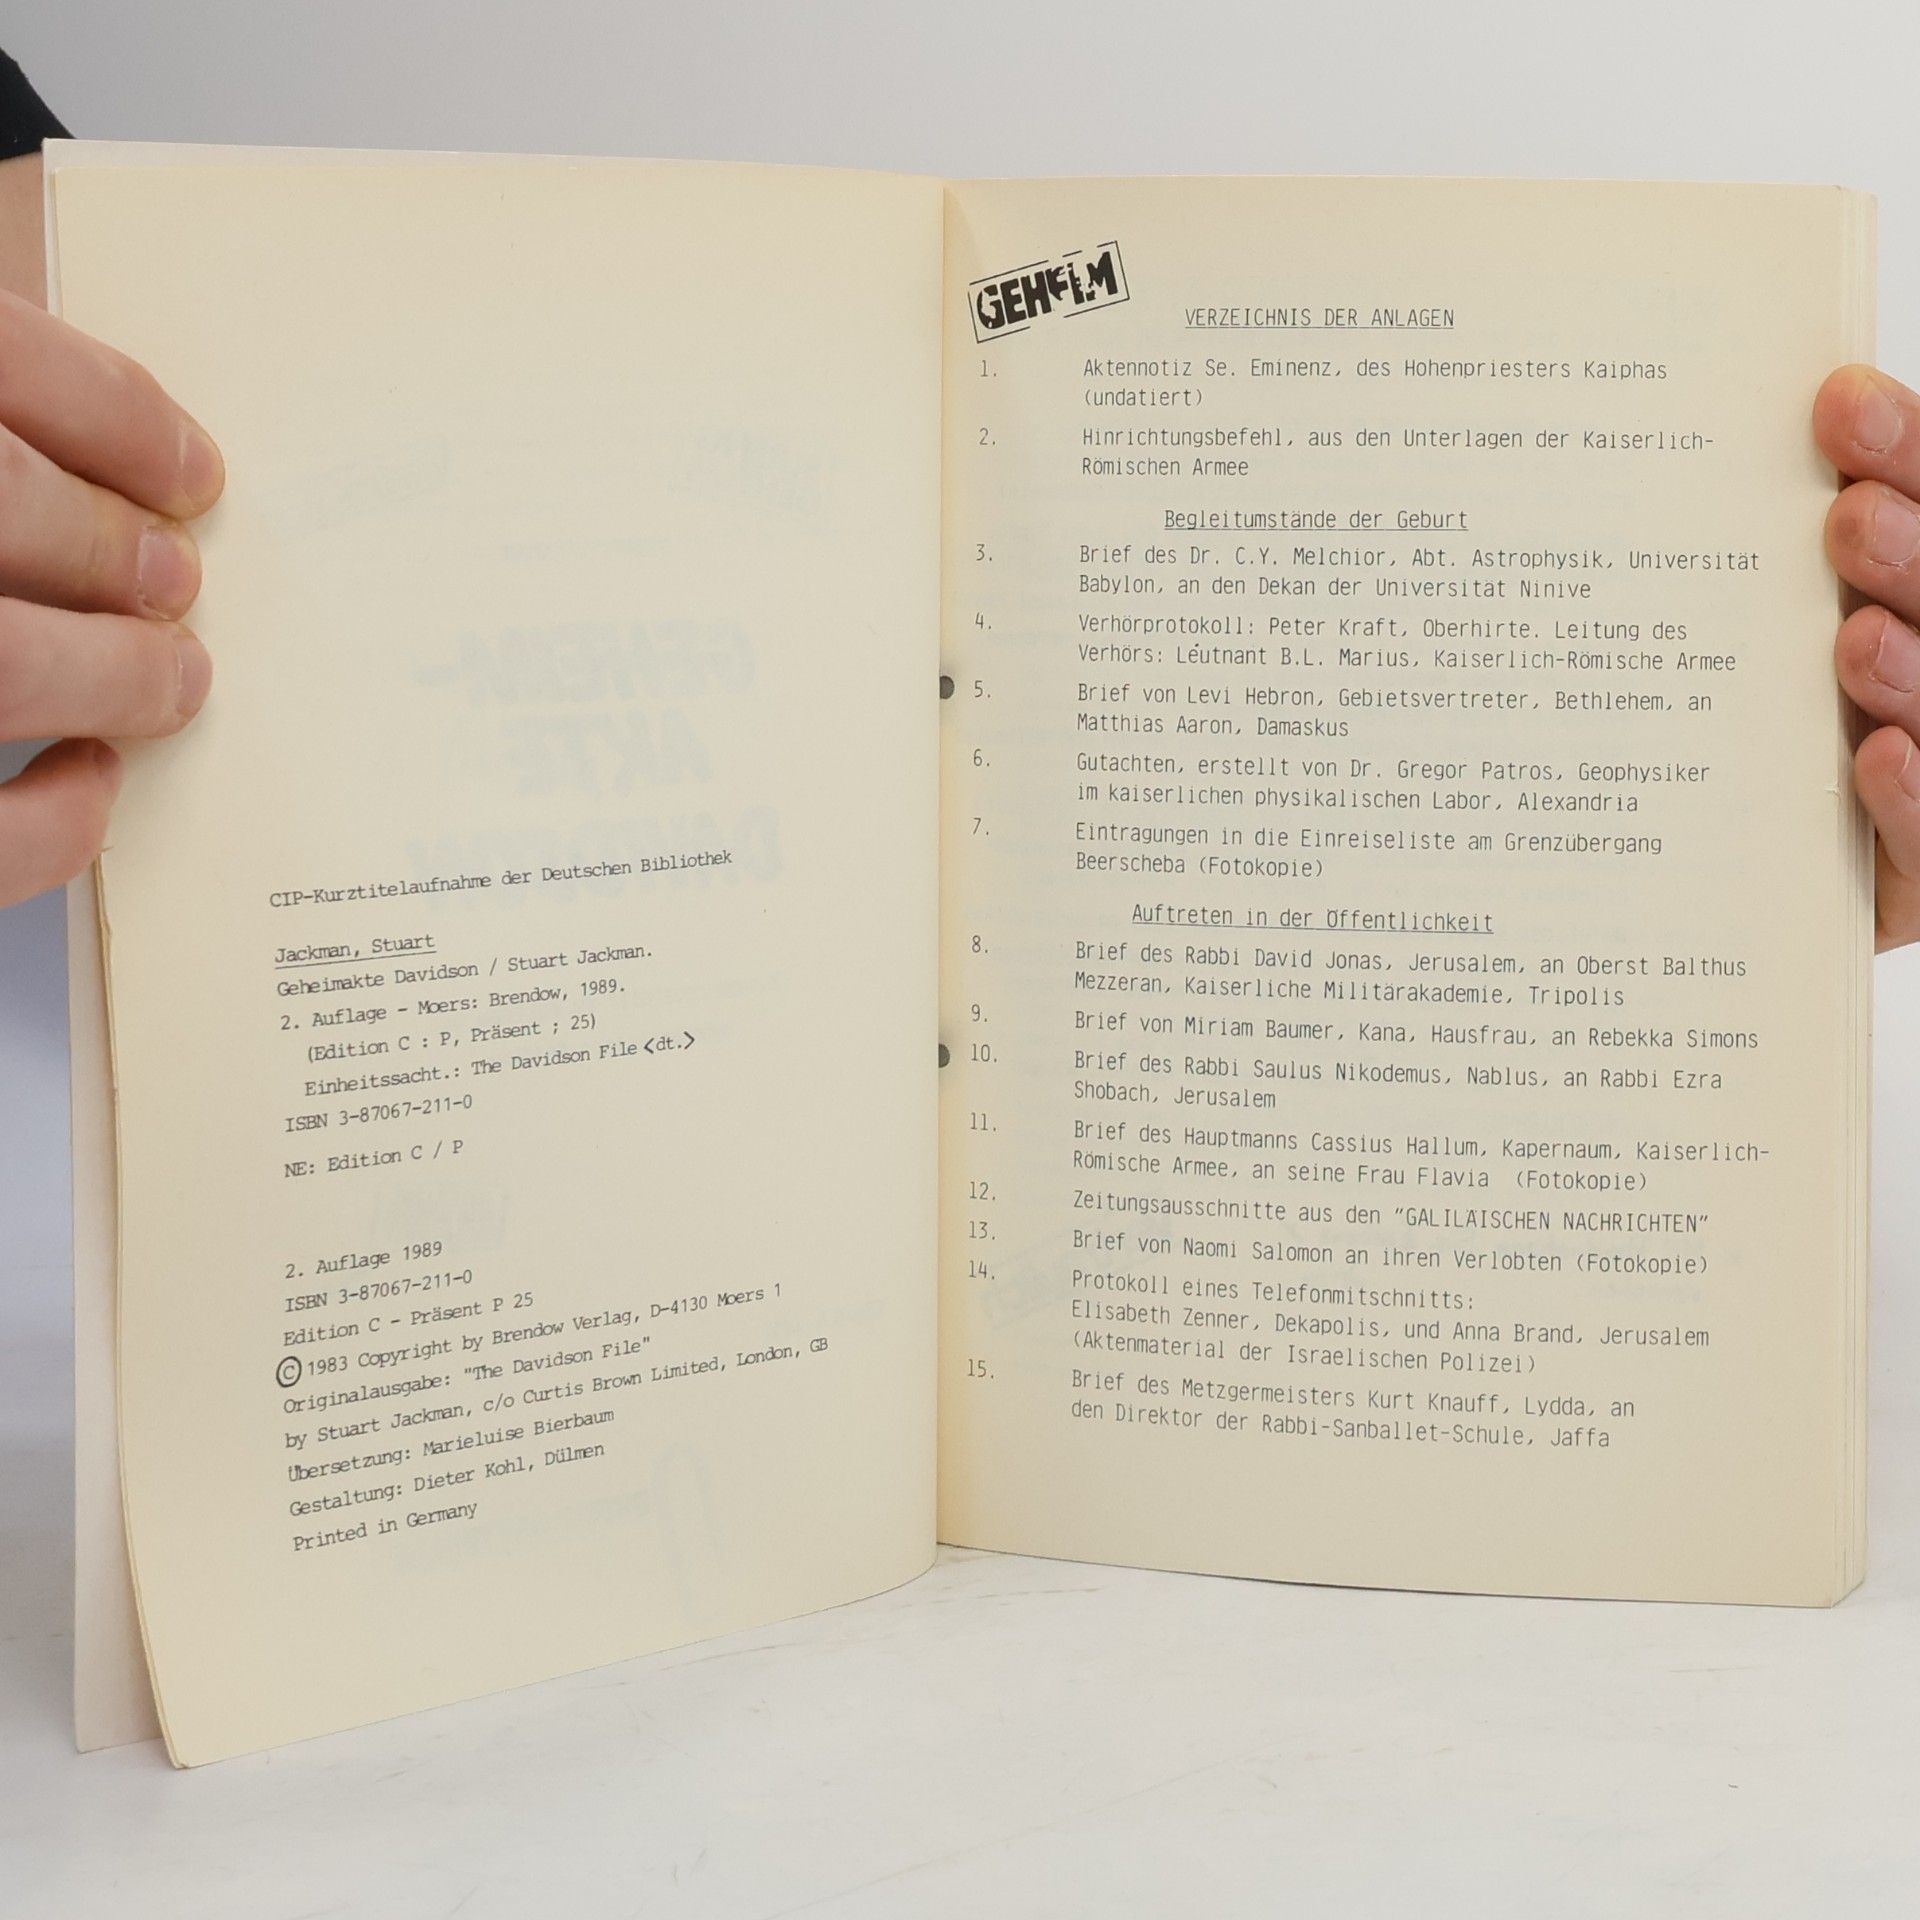 CIP-Kurztitelaufnahme der Deutschen Bibliothek
Jackman, Stuart
Geheimakte Davidson / Stuart Jackman.
2. Auflage - Moers: Brendow, 1989.
(Edition C : P, Präsent ; 25)
Einheitssacht.: The Davidson File <dt.>
ISBN 3-87067-211-0
NE: Edition C / P
2. Auflage 1989
ISBN 3-87067-211-0
Edition C - Präsent P 25
© 1983 Copyright by Brendow Verlag, D-4130 Moers 1
Originalausgabe: "The Davidson File"
by Stuart Jackman, c/o Curtis Brown Limited, London, GB
Übersetzung: Marieluise Bierbaum
Gestaltung: Dieter Kohl, Dülmen
Printed in Germany
GEHEIM
VERZEICHNIS DER ANLAGEN
1. Aktennotiz Se. Eminenz, des Hohenpriesters Kaiphas
(undatiert)
2. Hinrichtungsbefehl, aus den Unterlagen der Kaiserlich-
Römischen Armee
Begleitumstände der Geburt
3. Brief des Dr. C.Y. Melchior, Abt. Astrophysik, Universität
Babylon, an den Dekan der Universität Ninive
4. Verhörprotokoll: Peter Kraft, Oberhirte. Leitung des
Verhörs: Leutnant B.L. Marius, Kaiserlich-Römische Armee
5. Brief von Levi Hebron, Gebietsvertreter, Bethlehem, an
Matthias Aaron, Damaskus
6. Gutachten, erstellt von Dr. Gregor Patros, Geophysiker
im kaiserlichen physikalischen Labor, Alexandria
7. Eintragungen in die Einreiseliste am Grenzübergang
Beerscheba (Fotokopie)
Auftreten in der Öffentlichkeit
8. Brief des Rabbi David Jonas, Jerusalem, an Oberst Balthus
Mezzeran, Kaiserliche Militärakademie, Tripolis
9. Brief von Miriam Baumer, Kana, Hausfrau, an Rebekka Simons
10. Brief des Rabbi Saulus Nikodemus, Nablus, an Rabbi Ezra
Shobach, Jerusalem
11. Brief des Hauptmanns Cassius Hallum, Kapernaum, Kaiserlich-
Römische Armee, an seine Frau Flavia (Fotokopie)
12. Zeitungsausschnitte aus den "GALILÄISCHEN NACHRICHTEN"
13. Brief von Naomi Salomon an ihren Verlobten (Fotokopie)
14. Protokoll eines Telefonmitschnitts:
Elisabeth Zenner, Dekapolis, und Anna Brand, Jerusalem
(Aktenmaterial der Israelischen Polizei)
15. Brief des Metzgermeisters Kurt Knauff, Lydda, an
den Direktor der Rabbi-Sanballet-Schule, Jaffa